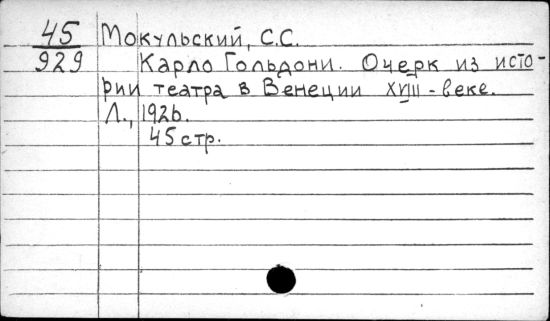 45 Мокульский, С.С.
929 Карло Гольдони. Очерк из исто-
рии театра в Венеции XVIII-веке.
Л., 1926.
45 стр.